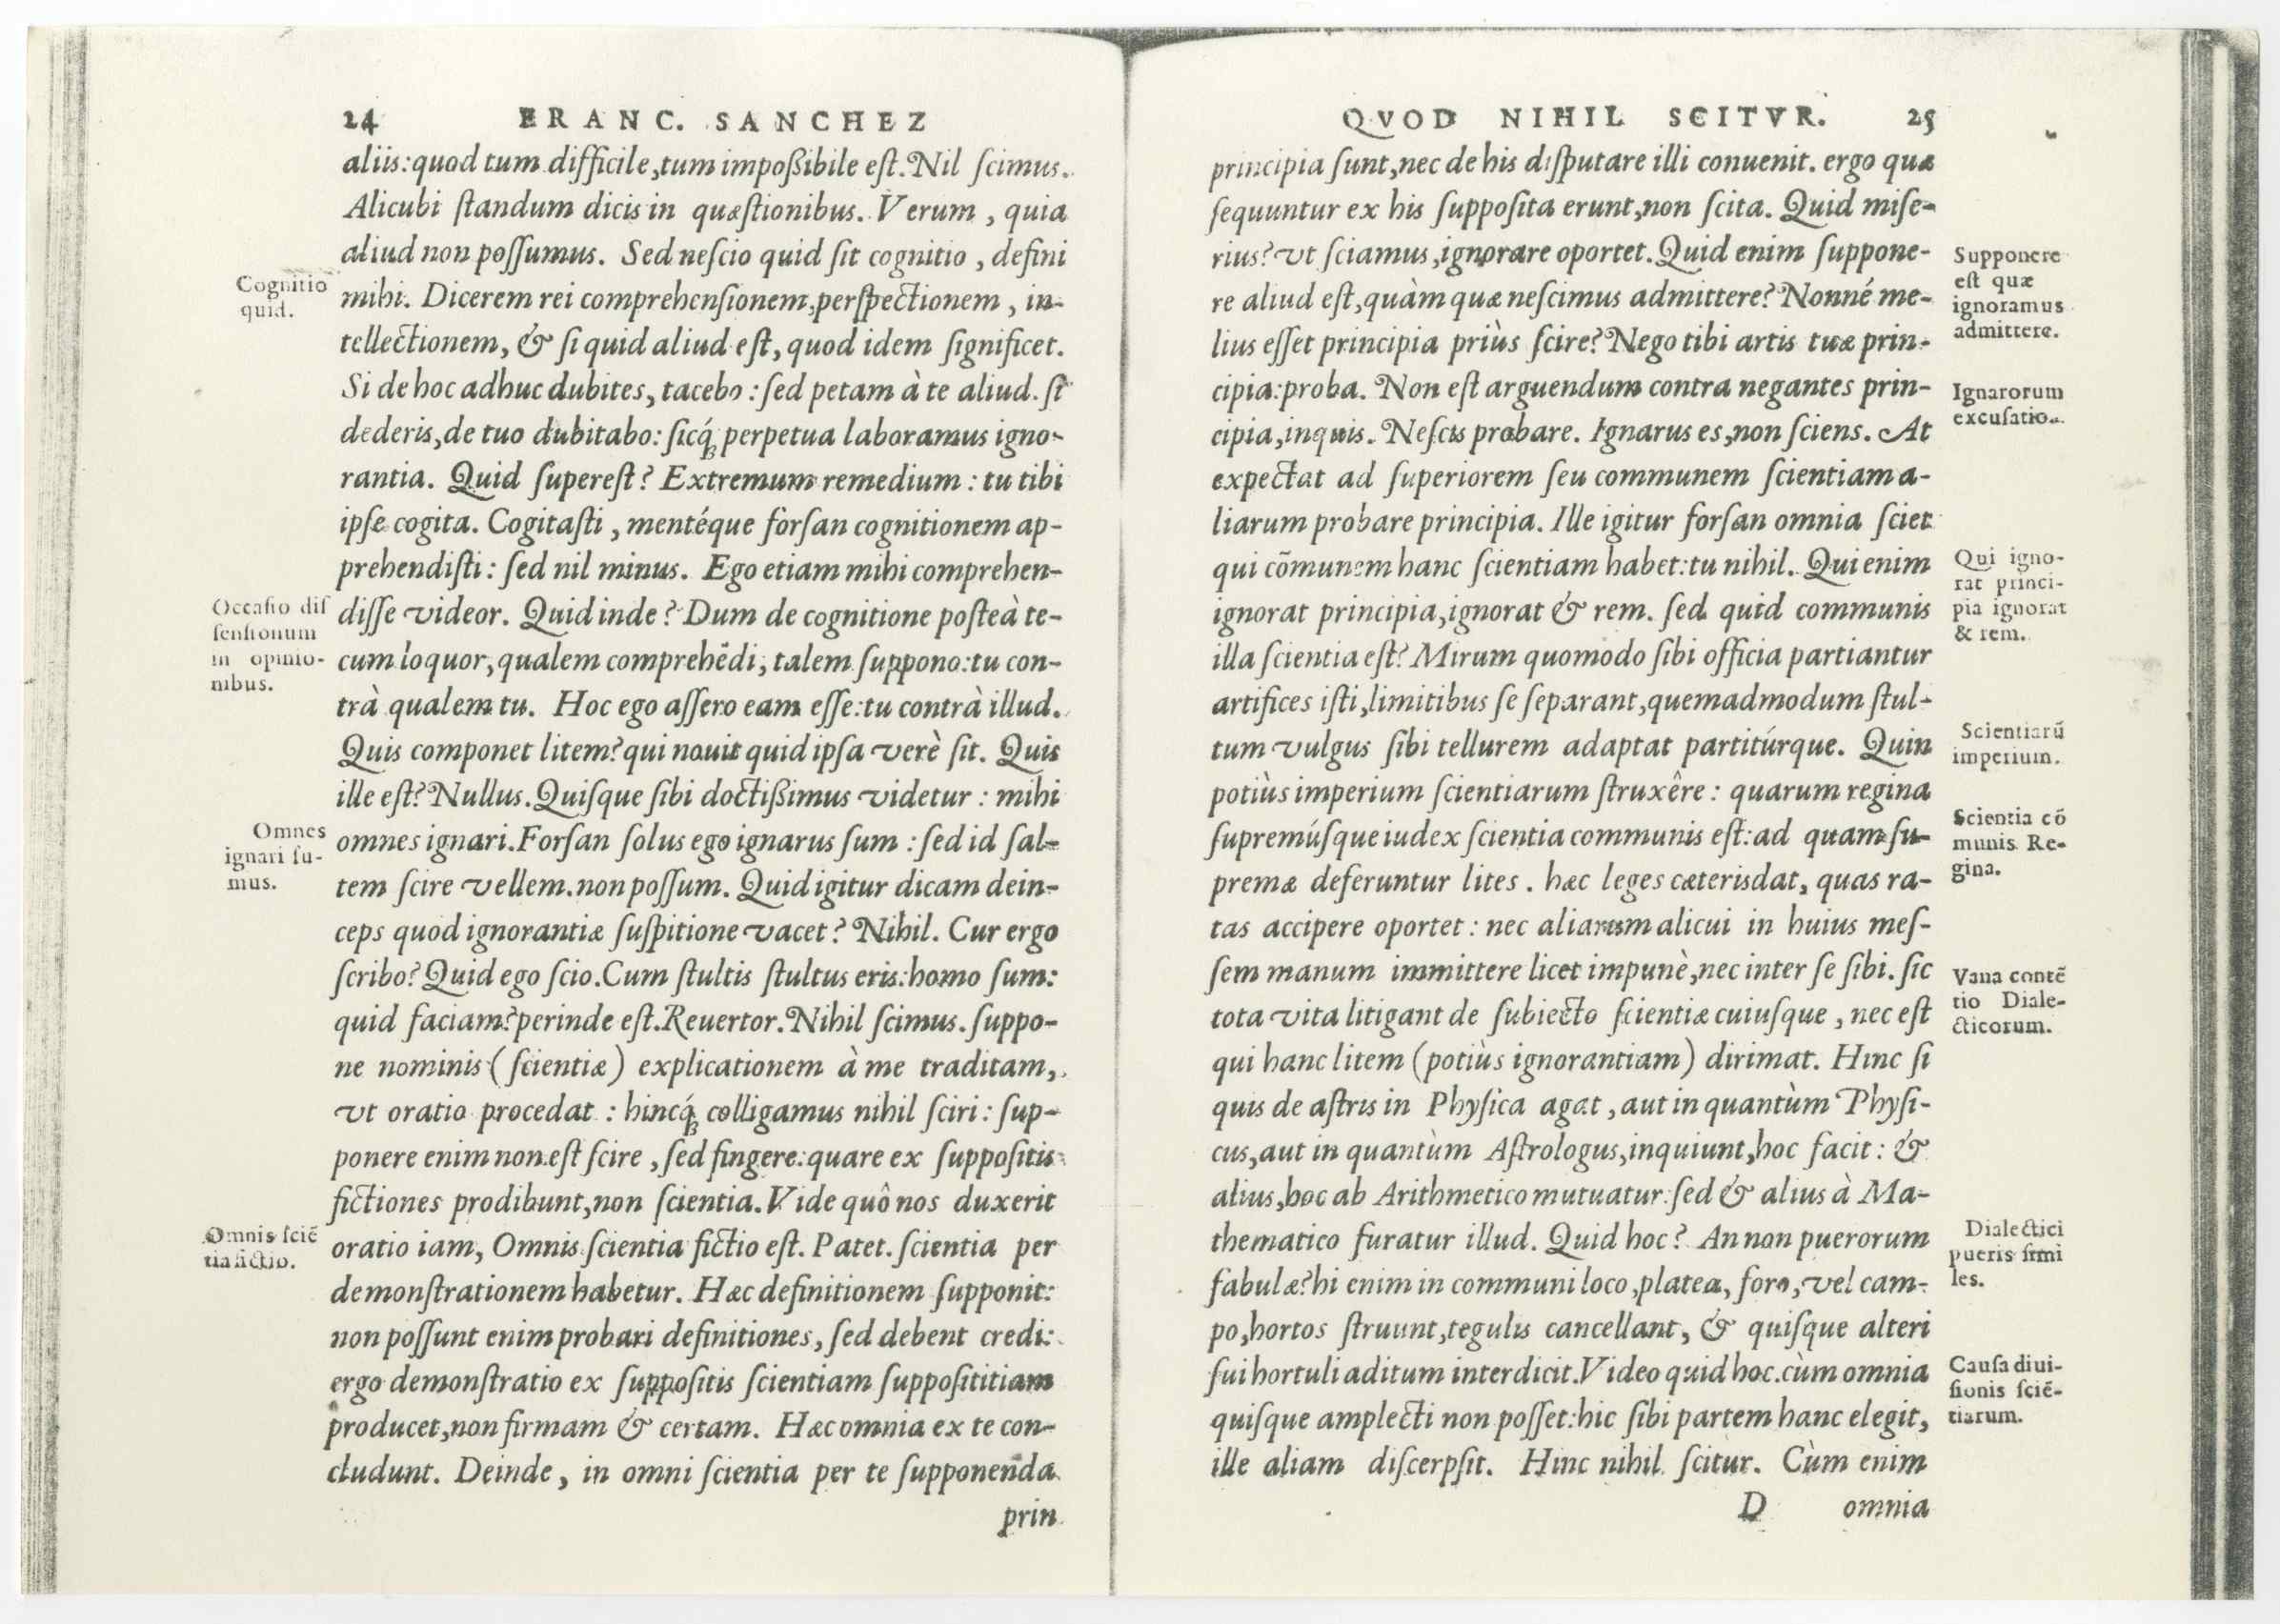 24 FRANC. SANCHEZ
aliis: quod tum difficile, tum impoßibile eſt. Nil ſcimus.
Alicubi ſtandum dicis in quæſtionibus. Verum, quia
aliud non poſſumus. Sed neſcio quid ſit cognitio, defini
mihi. Dicerem rei comprehenſionem, perſpectionem, in-
tellectionem, & ſi quid aliud eſt, quod idem ſignificet.
Si de hoc adhuc dubites, tacebo: ſed petam à te aliud. ſi
dederis, de tuo dubitabo: ſicq́ꝫ perpetua laboramus igno-
rantia. Quid ſupereſt? Extremum remedium: tu tibi
ipſe cogita. Cogitaſti, mentéque forſan cognitionem ap-
prehendiſti: ſed nil minus. Ego etiam mihi comprehen-
diſſe videor. Quid inde? Dum de cognitione poſteà te-
cum loquor, qualem comprehēdi, talem ſuppono: tu con-
trà qualem tu. Hoc ego aſſero eam eſſe: tu contrà illud.
Quis componet litem? qui nouit quid ipſa verè ſit. Quis
ille eſt? Nullus. Quiſque ſibi doctißimus videtur: mihi
omnes ignari. Forſan ſolus ego ignarus ſum: ſed id ſal-
tem ſcire vellem. non poſſum. Quid igitur dicam dein-
ceps quod ignorantiæ ſuſpitione vacet? Nihil. Cur ergo
ſcribo? Quid ego ſcio. Cum ſtultis ſtultus eris: homo ſum:
quid faciam? perinde eſt. Reuertor. Nihil ſcimus. ſuppo-
ne nominis (ſcientiæ) explicationem à me traditam,
vt oratio procedat: hincq́ꝫ colligamus nihil ſciri: ſup-
ponere enim non eſt ſcire, ſed fingere: quare ex ſuppoſitis
fictiones prodibunt, non ſcientia. Vide quô nos duxerit
oratio iam, Omnis ſcientia fictio eſt. Patet. ſcientia per
demonſtrationem habetur. Hæc definitionem ſupponit:
non poſſunt enim probari definitiones, ſed debent credi:
ergo demonſtratio ex ſuppoſitis ſcientiam ſuppoſititiam
producet, non firmam & certam. Hæc omnia ex te con-
cludunt. Deinde, in omni ſcientia per te ſupponenda
prin
Cognitio
quid.
Occaſio diſ
ſenſionum
in opinio-
nibus.
Omnes
ignari ſu-
mus.
Omnis ſciē
tia fictio.
QVOD NIHIL SCITVR. 25
principia ſunt, nec de his diſputare illi conuenit. ergo quæ
ſequuntur ex his ſuppoſita erunt, non ſcita. Quid miſe-
rius? vt ſciamus, ignorare oportet. Quid enim ſuppone-
re aliud eſt, quàm quæ neſcimus admittere? Nonné me-
lius eſſet principia priùs ſcire? Nego tibi artis tuæ prin-
cipia: proba. Non eſt arguendum contra negantes prin-
cipia, inquis. Neſcis probare. Ignarus es, non ſciens. At
expectat ad ſuperiorem ſeu communem ſcientiam a-
liarum probare principia. Ille igitur forſan omnia ſciet
qui cōmunem hanc ſcientiam habet: tu nihil. Qui enim
ignorat principia, ignorat & rem. ſed quid communis
illa ſcientia eſt? Mirum quomodo ſibi officia partiantur
artifices iſti, limitibus ſe ſeparant, quemadmodum ſtul-
tum vulgus ſibi tellurem adaptat partitúrque. Quin
potiùs imperium ſcientiarum ſtruxêre: quarum regina
ſupremúſque iudex ſcientia communis eſt: ad quam ſu-
premæ deferuntur lites. hæc leges cæteris dat, quas ra-
tas accipere oportet: nec aliarum alicui in huius meſ-
ſem manum immittere licet impunè, nec inter ſe ſibi. ſic
tota vita litigant de ſubiecto ſcientiæ cuiuſque, nec eſt
qui hanc litem (potiùs ignorantiam) dirimat. Hinc ſi
quis de aſtris in Phyſica agat, aut in quantùm Phyſi-
cus, aut in quantùm Aſtrologus, inquiunt, hoc facit: &
alius, hoc ab Arithmetico mutuatur: ſed & alius à Ma-
thematico furatur illud. Quid hoc? An non puerorum
fabulæ? hi enim in communi loco, platea, foro, vel cam-
po, hortos ſtruunt, tegulis cancellant, & quiſque alteri
ſui hortuli aditum interdicit. Video quid hoc. cùm omnia
quiſque amplecti non poſſet: hic ſibi partem hanc elegit,
ille aliam diſcerpſit. Hinc nihil ſcitur. Cùm enim
D omnia
Supponere
eſt quæ
ignoramus
admittere.
Ignarorum
excuſatio.
Qui igno-
rat princi-
pia ignorat
& rem.
Scientiarū
imperium.
Scientia cō
munis Re-
gina.
Vana contē
tio Diale-
cticorum.
Dialectici
pueris ſimi
les.
Cauſa diui-
ſionis ſciē-
tiarum.